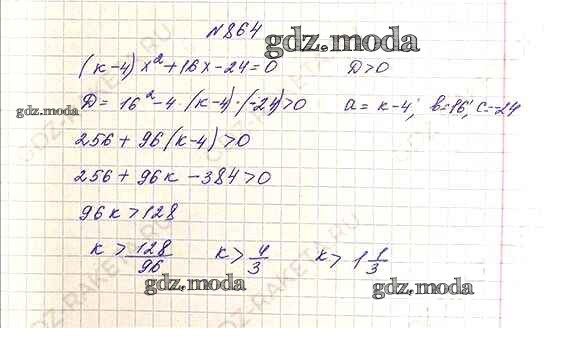 №864
gdz.moda
(к-4)x²+16x-24=0 D>0
gdz.moda
D= 16²-4·(к-4)·(-24)>0 a= к-4; в=16; c=-24
256+96(к-4)>0
256+96к-384>0
96к>128
к>128/96 к>4/3 к>1 1/3
gdz.moda
gdz.moda